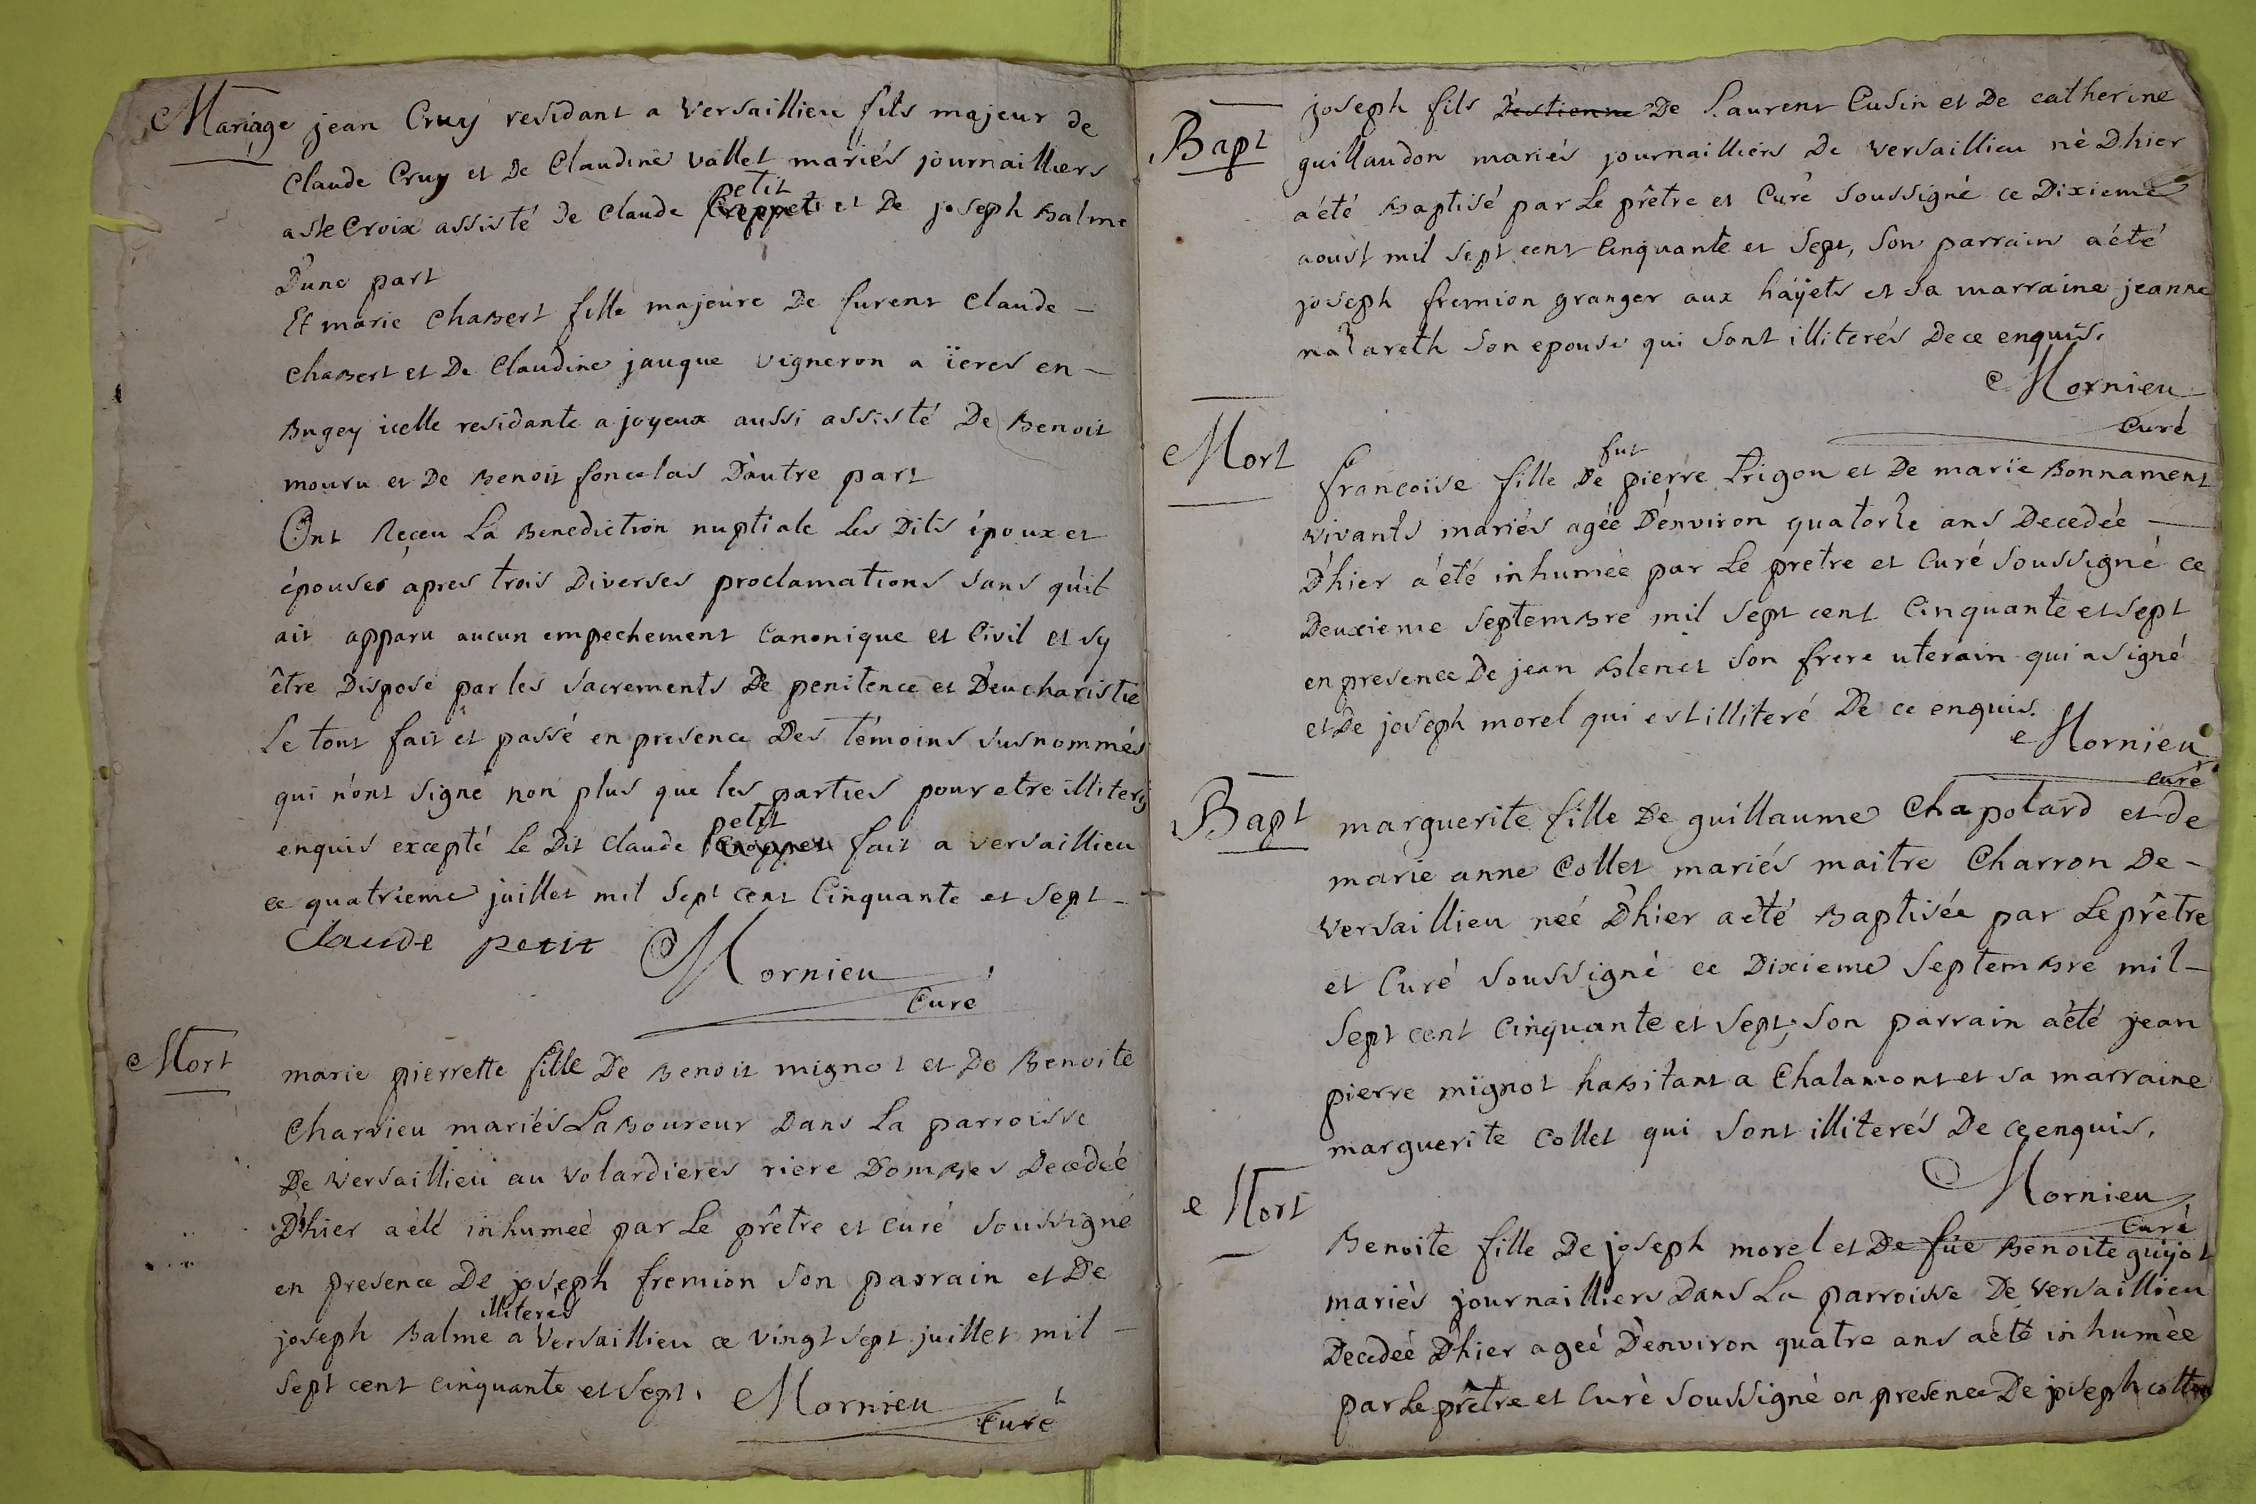 Mariage jean Cruy residant a versaillieu fils majeur de
Claude Cruy et De Claudine vallet mariés journailliers
a ste Croix assisté de claude petit et De joseph Balme
D'une part
Et marie chabert fille majeure De furent claude -
chabert et De Claudine jauque vigneron a ïeres en -
Bugey icelle residante a joyeux aussi assisté De Benoit
mouru et De Benoit foncelas D'autre part
Ont Reçeu La Benediction nuptiale Les Dits époux et
épouses apres trois Diverses proclamations sans qu'il
ait apparu aucun empechement Canonique et Civil et sy
être Disposé par les sacrements De penitence et D'eucharistie
Le tout fait et passé en presence Des témoins susnommés
qui n'ont signé non plus que les parties pour etre illiterés
enquis excepté Le Dit claude petit fait a versaillieu
ce quatrieme juillet mil sept cent Cinquante et sept -
Claude petit Mornieu
Curé
Mort marie pierrette fille De Benoit mignot et De Benoite
Charvieu mariés Laboureur Dans La parroisse
De versaillieu au volardieres riere Dombes Decedeé
D'hier a été inhumeé par Le prêtre et curé soussigné
en presence De joseph fremion son parrain et De
illiterés
joseph Balme a versaillieu ce vingt sept juillet mil -
sept cent cinquante et sept. Mornieu
Curé
Bapt joseph fils D'estienne De Laurent Cusin et De catherine
guillaudon mariés journailliers De versaillieu né D'hier
a été Baptisé par Le prêtre et Curé soussigné ce Dixieme
aoust mil sept cent Cinquante et sept, son parrain a été
joseph fremion granger aux häyets et sa marraine jeanne
nazareth son epouse qui sont illiterés De ce enquis.
Mornieu
Curé
fut
Mort francoise fille De pierre Trigon et De marie Bonnament
vivants mariés agée D'environ quatorze ans Decedée -
D'hier a été inhumée par Le pretre et Curé soussigné ce
Deuxieme septembre mil sept cent Cinquante et sept
en presence De jean Blenet son frere uterain qui a signé
et De joseph morel qui est illiteré De ce enquis.
Mornieu
Curé
Bapt marguerite fille De guillaume Chapolard et de
marie anne Collet mariés maitre Charron De -
versaillieu neé D'hier a été Baptisée par Le prêtre
et Curé soussigné ce Dixieme septembre mil -
sept cent Cinquante et sept, son parrain a été jean
pierre mignot habitant a Chalamont et sa marraine
marguerite Collet qui sont illiterés De ce enquis.
Mornieu
Curé
Mort Benoite fille De joseph morel et De füe Benoite guijot
mariés journailliers Dans La parroisse De versaillieu
Decedeé D'hier ageé D'environ quatre ans a été inhumée
par Le prêtre et Curé soussigné en presence De joseph